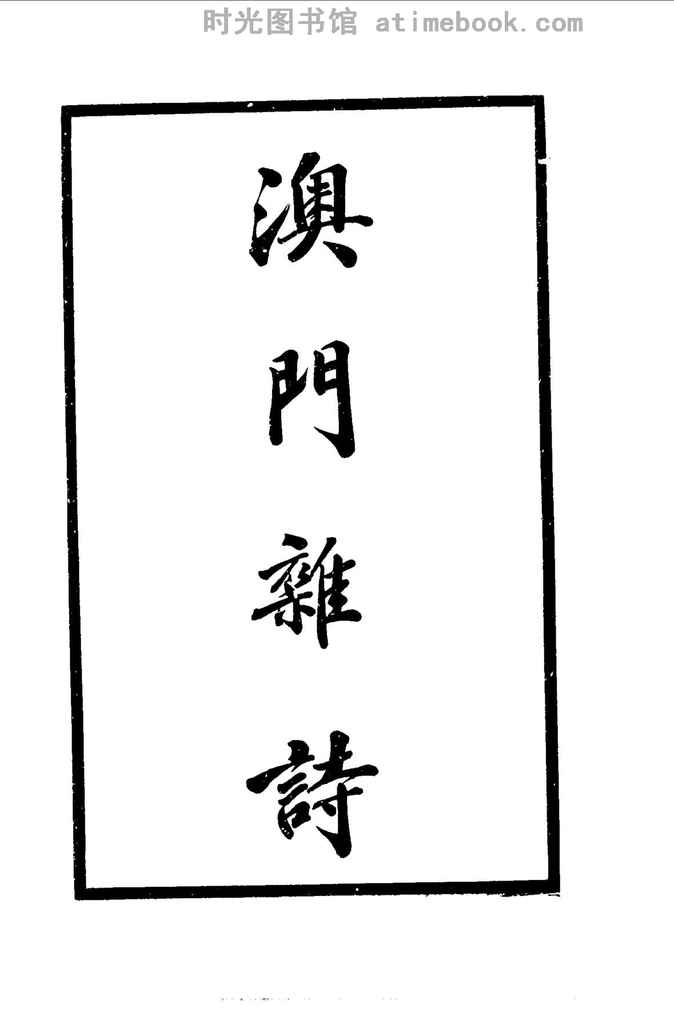 时光图书馆 atimebook.com
澳門雜詩